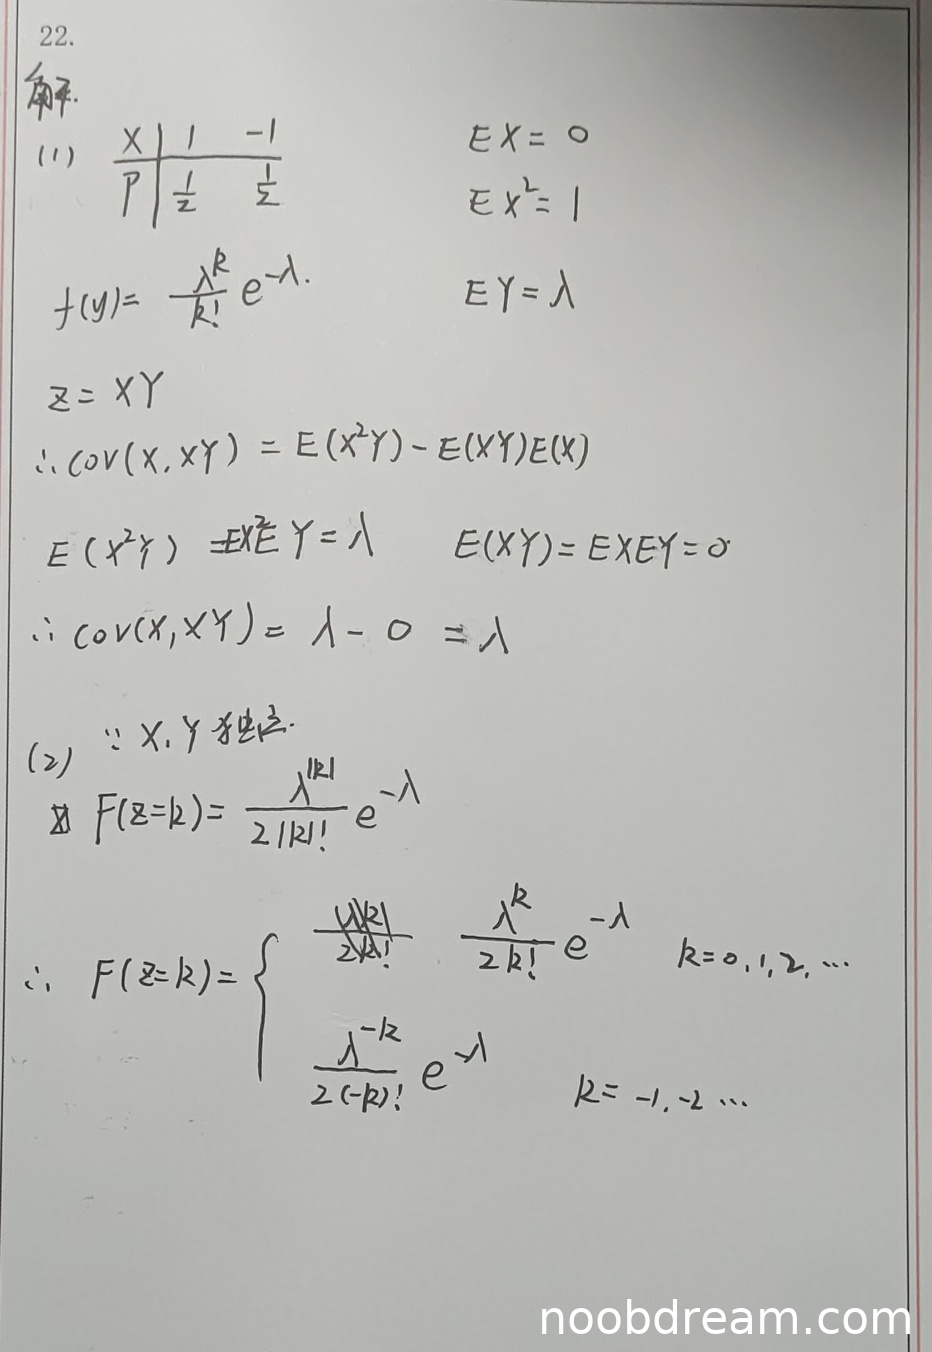 22.
解.
(1) X | 1 -1
P | 1/2 1/2
EX = 0
EX² = 1
f(y) = λ^k/k! e^{-λ}.
EY = λ
z = XY
∴ cov(X, XY) = E(X²Y) - E(XY)E(X)
E(X²Y) = EX²EY = λ E(XY) = EXEY = 0
∴ cov(X, XY) = λ - 0 = λ
(2) ∵ X, Y 独立.
F(z=k) = λ^{|k|}/2|k|! e^{-λ}
∴ F(z=k) = { λ^k/2k! e^{-λ} k = 0, 1, 2, ...
λ^{-k}/2(-k)! e^{-λ} k = -1, -2 ...
noobdream.com